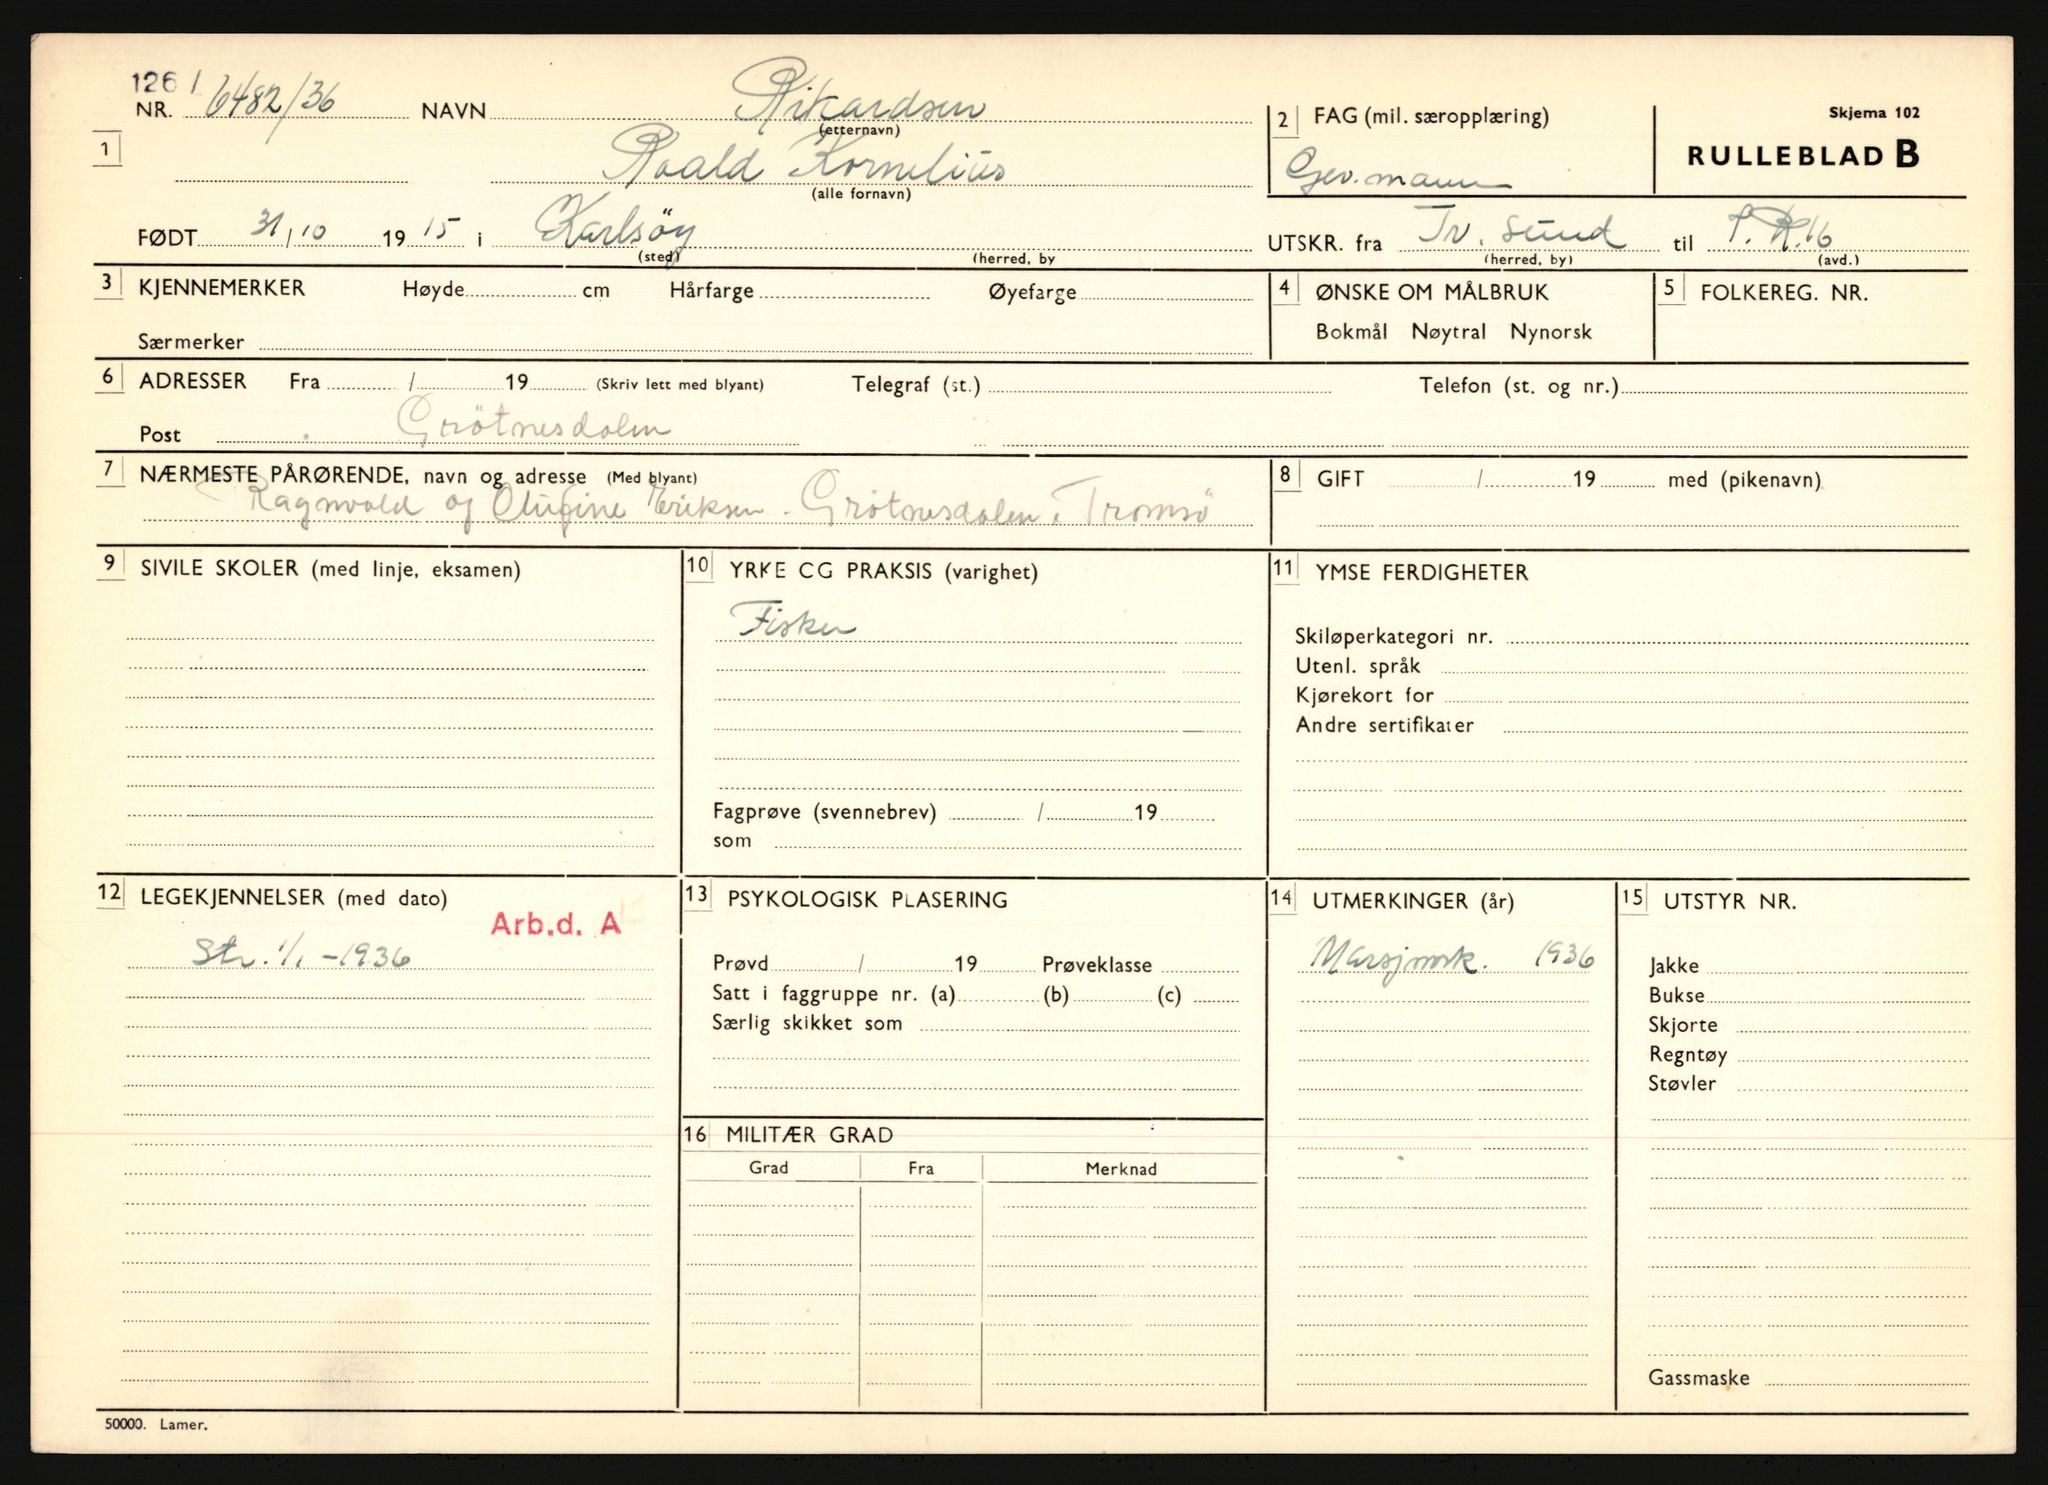 126 /
NR. 6482/36 NAVN Rikardsen
(etternavn)
1 Roald Kornelius
(alle fornavn)
2 FAG (mil. særopplæring)
Gev.mann
Skjema 102
RULLEBLAD B
FØDT 31/10 1915 i Karlsöy
(sted) (herred, by
UTSKR. fra Tr. sund til I.R.16
(herred, by) (avd.)
3 KJENNEMERKER Høyde cm Hårfarge Øyefarge
Særmerker
4 ØNSKE OM MÅLBRUK
Bokmål Nøytral Nynorsk
5 FOLKEREG. NR.
6 ADRESSER Fra / 19 (Skriv lett med blyant) Telegraf (st.) Telefon (st. og nr.)
Post Grötnesdalen
7 NÆRMESTE PÅRØRENDE, navn og adresse (Med blyant)
Ragnvald og Olufine Eriksen. Grötnesdalen, Tromsö
8 GIFT / 19 med (pikenavn)
9 SIVILE SKOLER (med linje, eksamen)
10 YRKE OG PRAKSIS (varighet)
Fisker
Fagprøve (svennebrev) / 19
som
11 YMSE FERDIGHETER
Skiløperkategori nr.
Utenl. språk
Kjørekort for
Andre sertifikater
12 LEGEKJENNELSER (med dato)
Arb.d. A
Str. 1/1 - 1936
13 PSYKOLOGISK PLASERING
Prøvd / 19 Prøveklasse
Satt i faggruppe nr. (a) (b) (c)
Særlig skikket som
14 UTMERKINGER (år)
Marsjmrk. 1936
15 UTSTYR NR.
Jakke
Bukse
Skjorte
Regntøy
Støvler
Gassmaske
16 MILITÆR GRAD
Grad Fra Merknad
50000. Lamer.